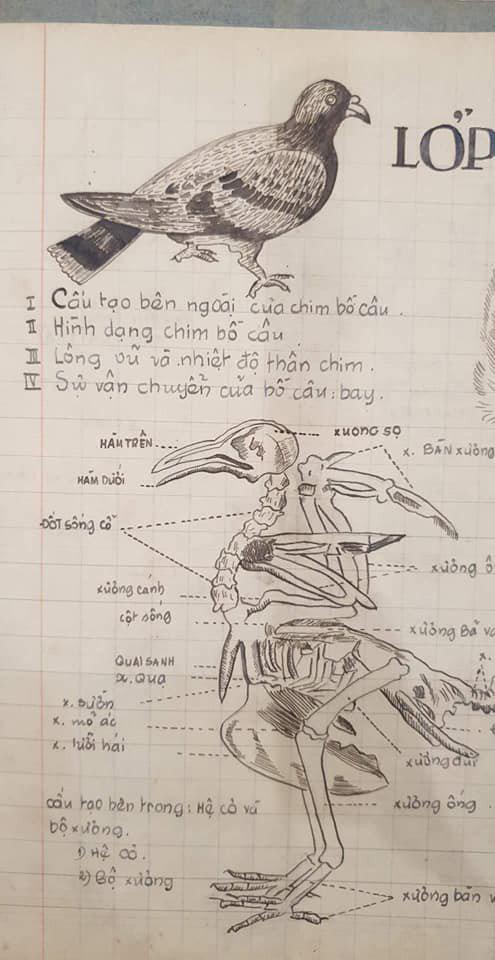 LỚP
I Cấu tạo bên ngoài của chim bồ câu.
II Hình dạng chim bồ câu.
III Lông vũ và nhiệt độ thân chim.
IV Sự vận chuyển của bồ câu: bay.
HÀM TRÊN
XƯƠNG SỌ
X. BÀN xương
HÀM DƯỚI
ĐỐT SỐNG CỔ
xương cánh
cột sống
xương Bả
QUAI SANH
X. QUẠ
x. sườn
x. mỏ ác
x. lưỡi hái
xương đùi
cấu tạo bên trong: Hệ cơ và
bộ xương.
xương ống
1) Hệ cơ.
2) Bộ xương
xương bàn